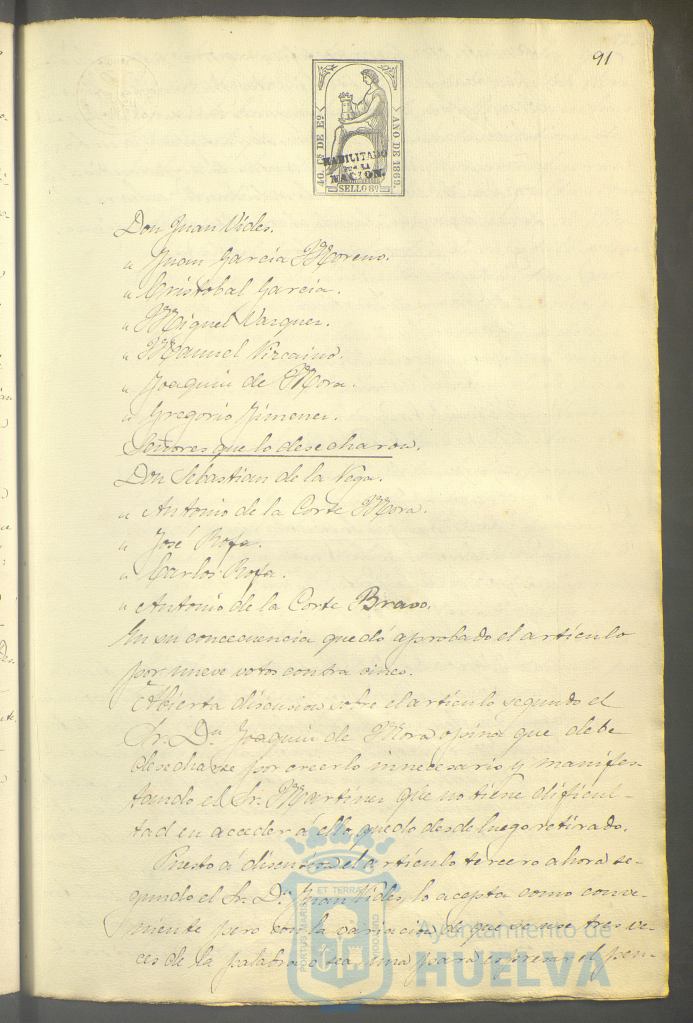 91
40 Cs DE Eo.
AÑO DE 1869.
HABILITADO
POR LA
NACION.
SELLO 8º
Don Juan Vides.
" Juan Garcia Moreno.
" Cristobal Garcia.
" Miguel Vazquez.
" Manuel Vizcaino.
" Joaquin de Mora.
" Gregorio Jimenez.
Señores que lo desecharon.
Don Sebastian de la Vega.
" Antonio de la Corte Mora.
" José Rofa.
" Carlos Rofa.
" Antonio de la Corte Bravo.
En su concecuencia quedó aprobado el artículo
por nueve votos contra cinco.
Abierta discusion sobre el artículo segundo el
Sr. Dn. Joaquin de Mora opina que debe
desecharse por creerlo innecesario y manifes-
tando el Sr. Martinez que no tiene dificul-
tad en acceder á ello, quedo desde luego retirado.
Puesto á discusion el artículo tercero ahora se-
gundo el Sr. Dn. Juan Vides, lo acepta como conve-
niente pero con la variacion de que se use tres ve-
ces de la palabra ó sea, una para espresar el pen-
PORTUS MARIS ET TERRAE CUSTODIA
Ayuntamiento de
HUELVA